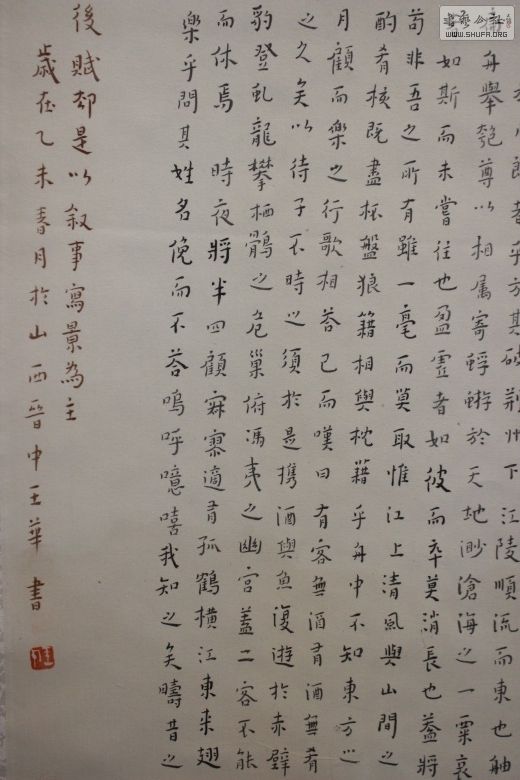 郎者乎方其破荊州下江陵順流而東也舳
舟舉匏尊以相属寄蜉蝣於天地渺滄海之一粟哀
如斯而未嘗往也盈虛者如彼而卒莫消長也蓋將
苟非吾之所有雖一毫而莫取惟江上清風與山間之
酌肴核既盡杯盤狼籍相與枕藉乎舟中不知東方之
月顧而樂之行歌相答已而嘆曰有客無酒有酒無肴
之久矣以待子不時之須於是攜酒與魚復遊於赤壁
豹登虬龍攀栖鶻之危巢俯馮夷之幽宮蓋二客不能
而休焉時夜將半四顧寂寥適有孤鶴橫江東來翅
樂乎問其姓名俛而不答嗚呼噫嘻我知之矣疇昔之
後賦却是以敘事寫景為主
歲在乙未春月於山西晉中王華書
WWW.SHUFA.ORG